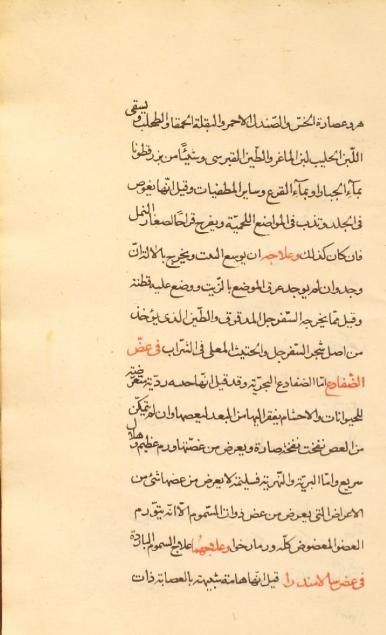 هو وعصارة الخس والصندل الاحمر والبقلة الحمقا والطحلب ويسقى
اللبن الحليب لبن الماعز والطين القبرسى وشيئا من بزرقطونا
بماء الخيار او بماء القرع وساير المطفيات وقيل انها يغوص
فى الجلد وتدب فى المواضع اللحمية ويخرج قراحا لصغار النمل
فان كان كذلك وعلاجه ان يوسع البيت ويخرج بالالة ان
وجد وان لم يوجد عرق الموضع بالزيت ووضع عليه قطنة
وقيل مما يخرجه السفرجل المدقوق والطين الذى يوخذ
من اصل شجر السفرجل والحلتيت المغلى فى الشراب فى عض
الضفادع اما الضفادع البحرية وقد قيل انها حده ردية متعرضة
للحيوانات والاجسام يقفز اليها من البعد لبعضها وان لم يتمكن
من العض نفخت نفخة ضارة ويعرض من عضتها ورم عظيم وهلاك
سريع واما البرية والنهرية فليته لا يعرض من عضها شئ من
الاعراض التى يعرض من عض ذوات السموم الا انه يتورم
العضو المعضوض كله ورما رخوا وعلاجهما علاج السموم الباردة
فى عض سالامندرا قيل انها هامة شبيهة بالعصابة ذات